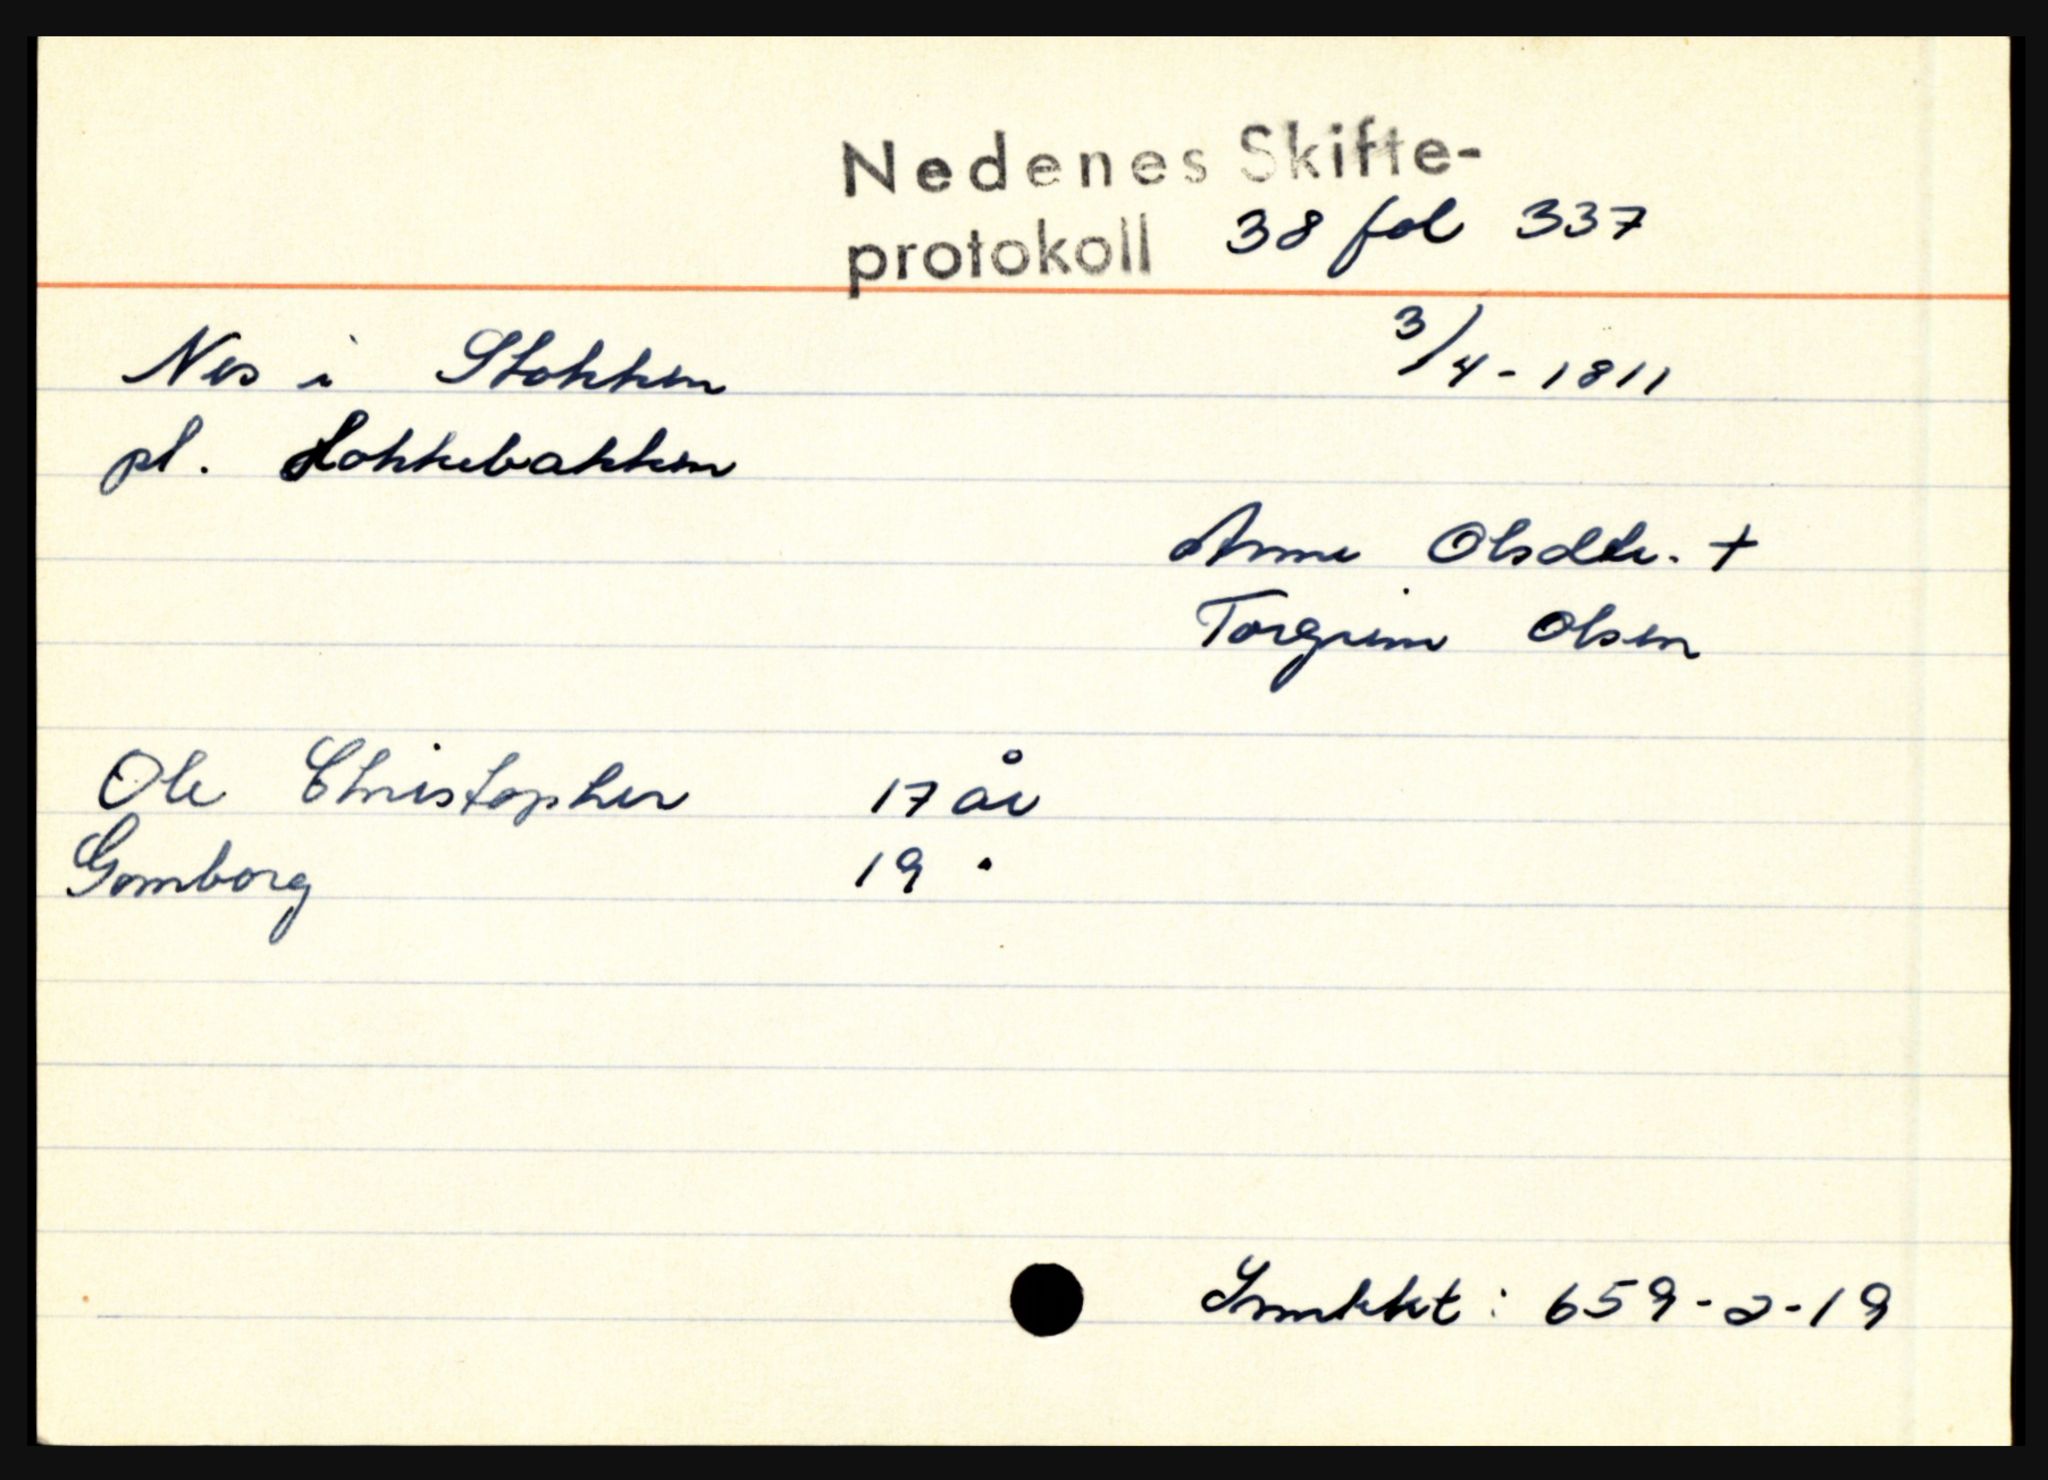 Nedenes Skifte-
protokoll 38 fol 337
Nes i Stokken 3/4-1811
pl. Lokkebakken
Anne Olsdtr. +
Torgrim Olsen
Ole Christopher 17 år
Gomborg 19 "
Smkkt: 659-2-19